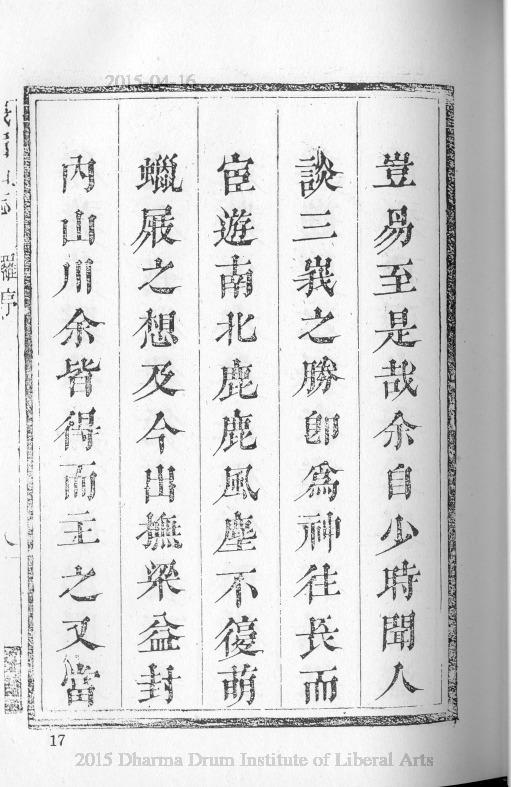 2015-04-16
豈易至是哉余自少時聞人
談三峩之勝即為神往長而
宦遊南北鹿鹿風塵不復萌
蠟屐之想及今出撫梁益封
內山川余皆得而主之又當
羅序
17
2015 Dharma Drum Institute of Liberal Arts